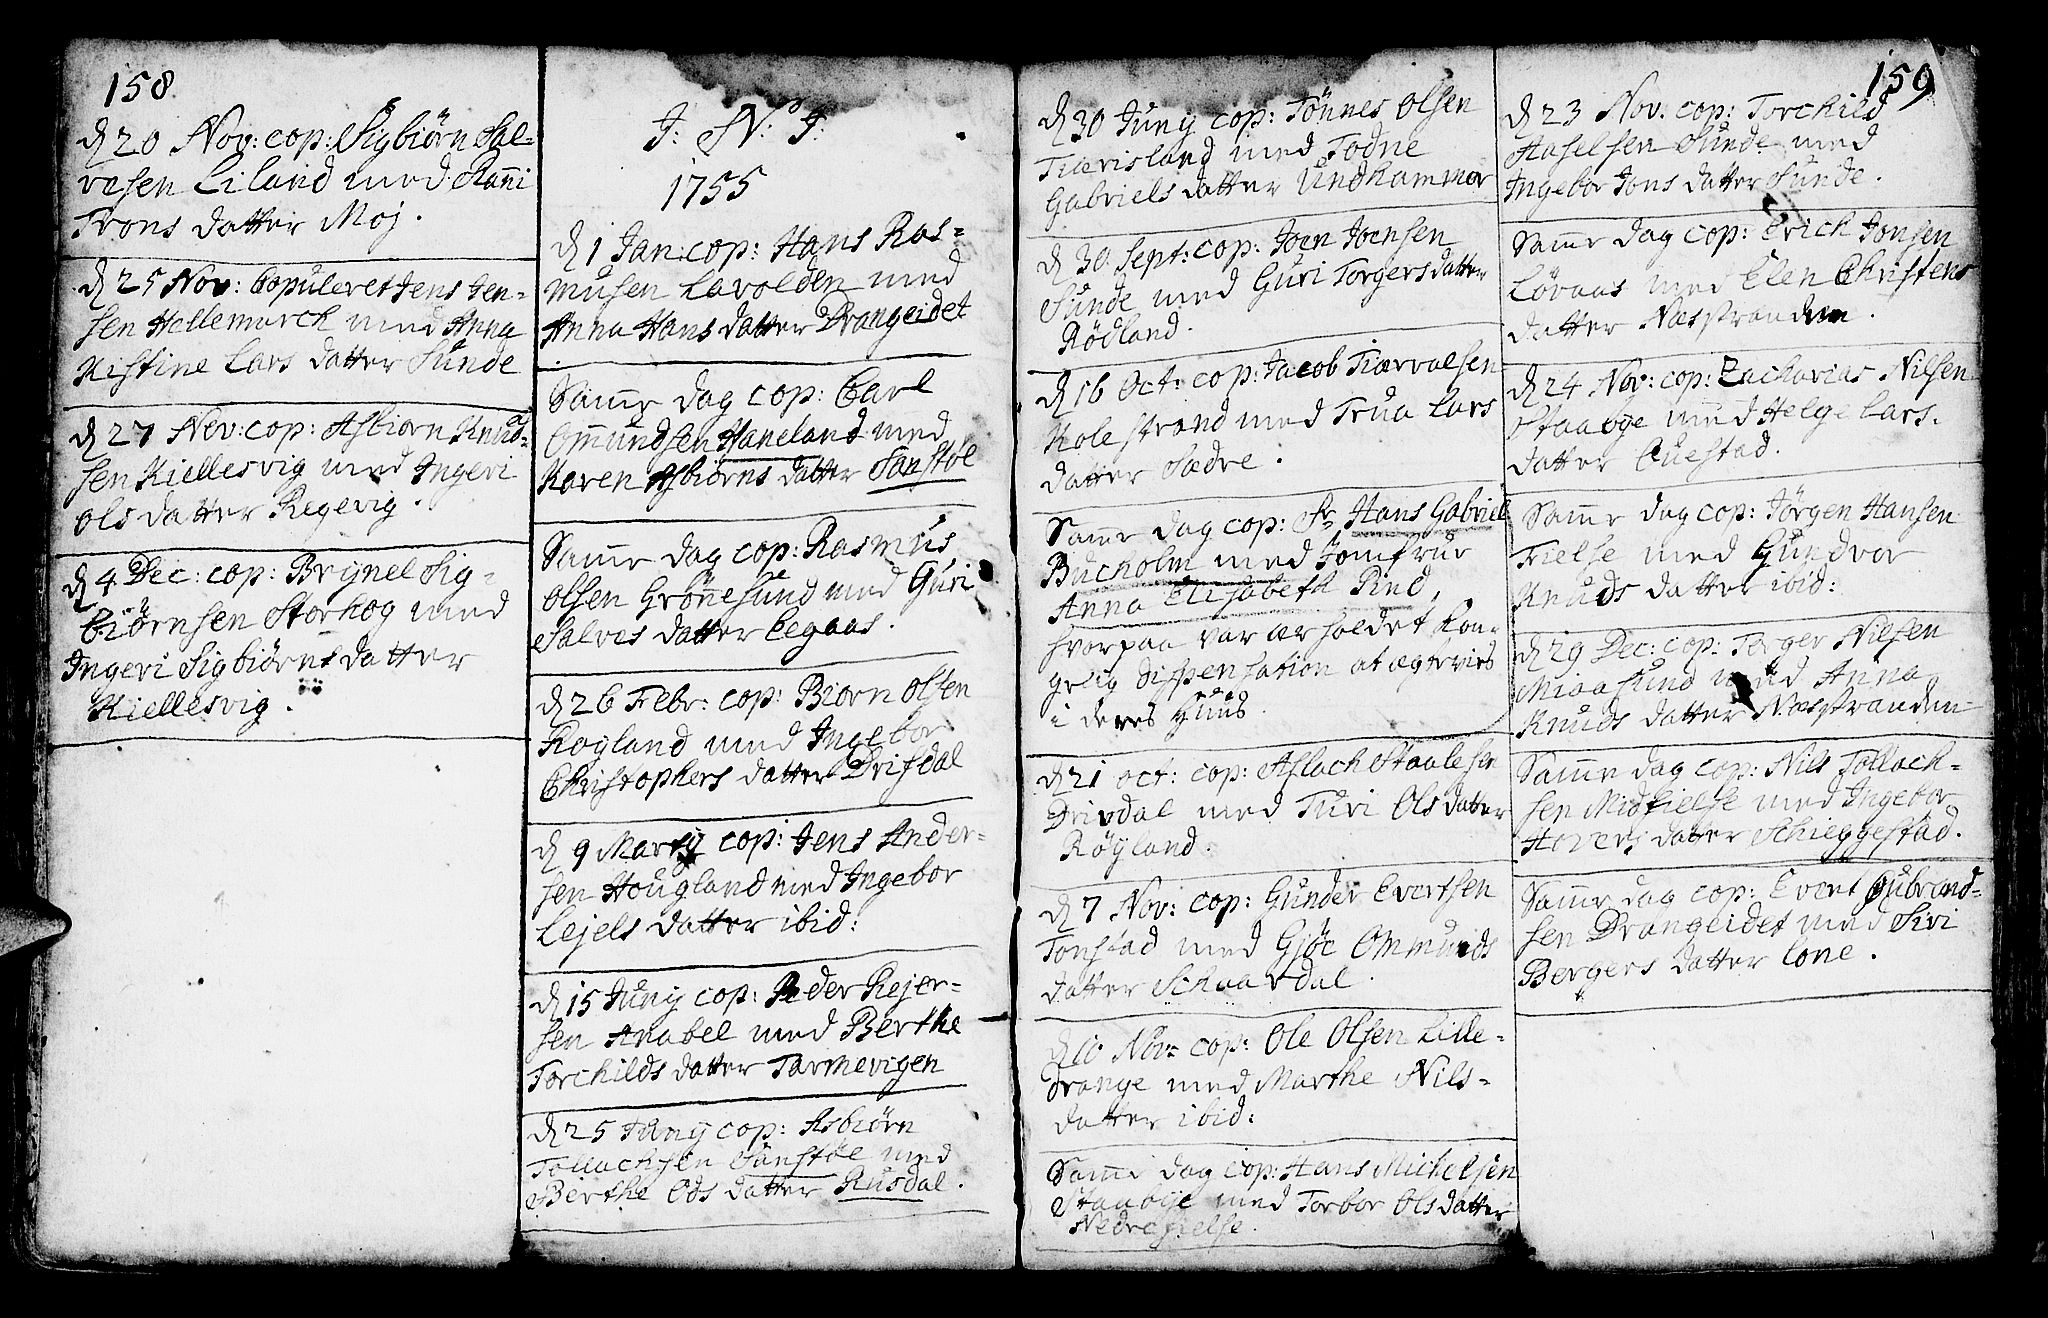 158
d 20 Nov: cop: Sigbiørn Sal-
vesen Liland med Ranni
Trons datter Moj.
d 25 Nov: Copuleret Jens Jen-
sen Hellemarck med Anna
Kistine Lars datter Sunde
d 27 Nov: cop: Asbiørn Knud-
sen Kiellesvig med Ingeri
Ols datter Regevig.
d 4 Dec: cop: Brynel Sig-
biörnsen Storhog med
Ingeri Sigbiörns datter
Kiellesvig.
J: N: J:
1755
d 1 Jan: cop: Hans Ras-
musen Lavolden med
Anna Hans datter Drangeidet
Samme dag cop: Carl
Ommundsen Haneland med
Karen Asbiørns datter Sanstøl
Samme dag cop: Rasmus
Olsen Grönnesund med Guri
Salves datter Eegaas.
d 26 Febr: cop: Biørn Olsen
Rogland med Ingebor
Christophers datter Drifdal
d 9 Marty cop: Jens Ander-
sen Hougland med Ingebor
Lejels datter ibid:
d 15 Juny cop: Peder Rejer-
sen Anabel med Berthe
Torchilds datter Tarmevigen
d 25 Juny cop: Asbiørn
Tollachsen Sanstøl med
Berthe Ods datter Rusdal.
159
d 30 Juny cop: Tönnes Olsen
Tiørisland med Todne
Gabriels datter Undhammar
d 30 Sept: cop: Joen Joensen
Sunde med Guri Torgers datter
Rödland.
d 16 Oct: cop: Jacob Tiørvalsen
Kolestrand med Trua Lars
datter Sædre.
Samme dag cop: Sr Hans Gabriel
Bucholm med Jomfrue
Anna Elisabeth Pind,
hvorpaa var ærholdet Kon-
gelig Dispensation at ægtevies
i deres Huus.
d 21 Oct: cop: Aslach Staalesen
Drivdal med Turi Ols datter
Röyland.
d 7 Nov: cop: Gunder Evertsen
Tonstad med Gjöe Ommunds
datter Schaardal.
d 10 Nov: cop: Ole Olsen Lille-
drange med Marthe Nils-
datter ibid:
Samme dag cop: Hans Michelsen
Staabye med Torbor Ols datter
Nedrefielse.
d 23 Nov: cop: Torchild
Aaselsen Sunde med
Ingebor Jons datter Sunde.
Samme dag cop: Erich Jonsen
Lövaas med Elen Christens
datter Næsstranden.
d 24 Nov: cop: Zacharias Nilsen
Staabye med Helge Lars.
datter Questad.
Samme dag cop: Jörgen Hansen
Fielse med Gundvor
Knuds datter ibid:
d 29 Dec: cop: Torger Nilsen
Miaasund med Anna
Knuds datter Næsstranden
Samme dag cop: Nils Tollach-
sen Midfielse med Ingebor
Hovers datter Schieggestad.
Samme dag cop: Evert Gubrand-
sen Drangeidet med Siri
Bergers datter Lone.